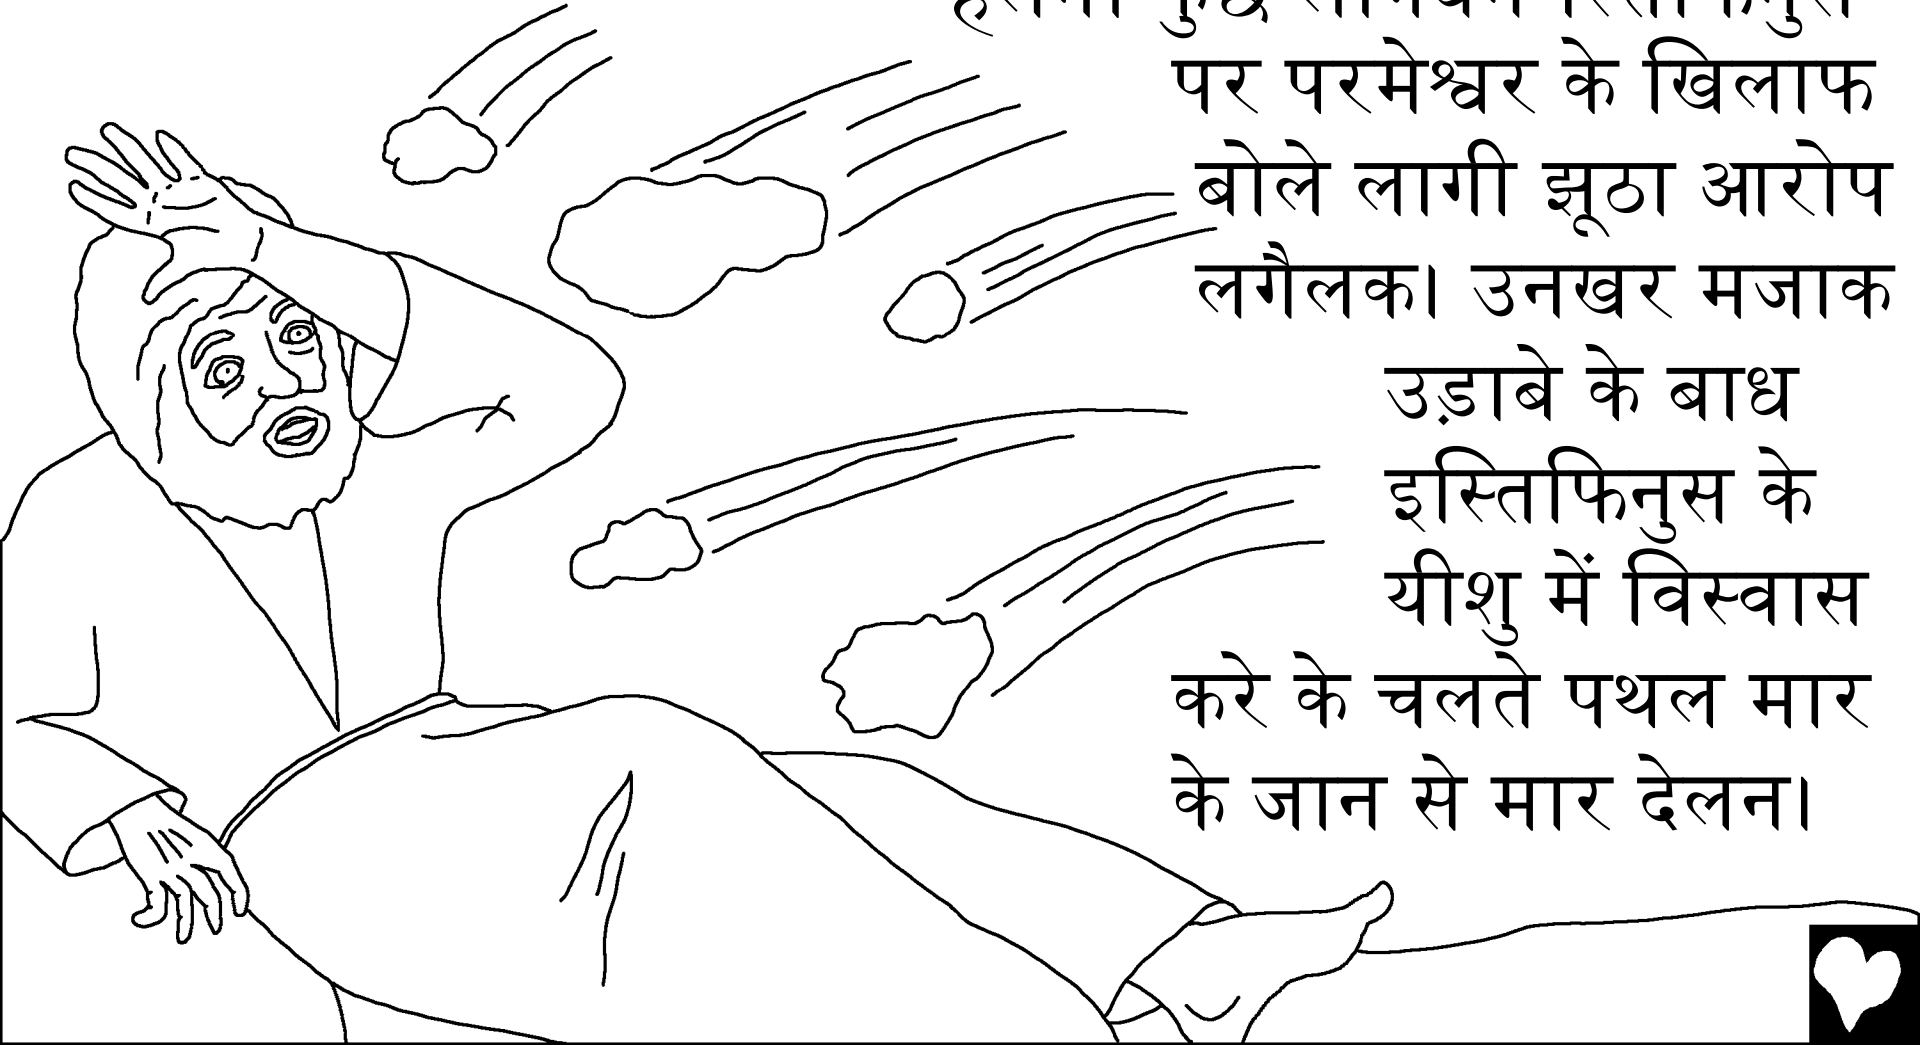 पर परमेश्वर के खिलाफ
बोले लागी झूठा आरोप
लगैलक। उनखर मजाक
उड़ाबे के बाध
इस्तिफिनुस के
यीशु में विस्वास
करे के चलते पथल मार
के जान से मार देलन।